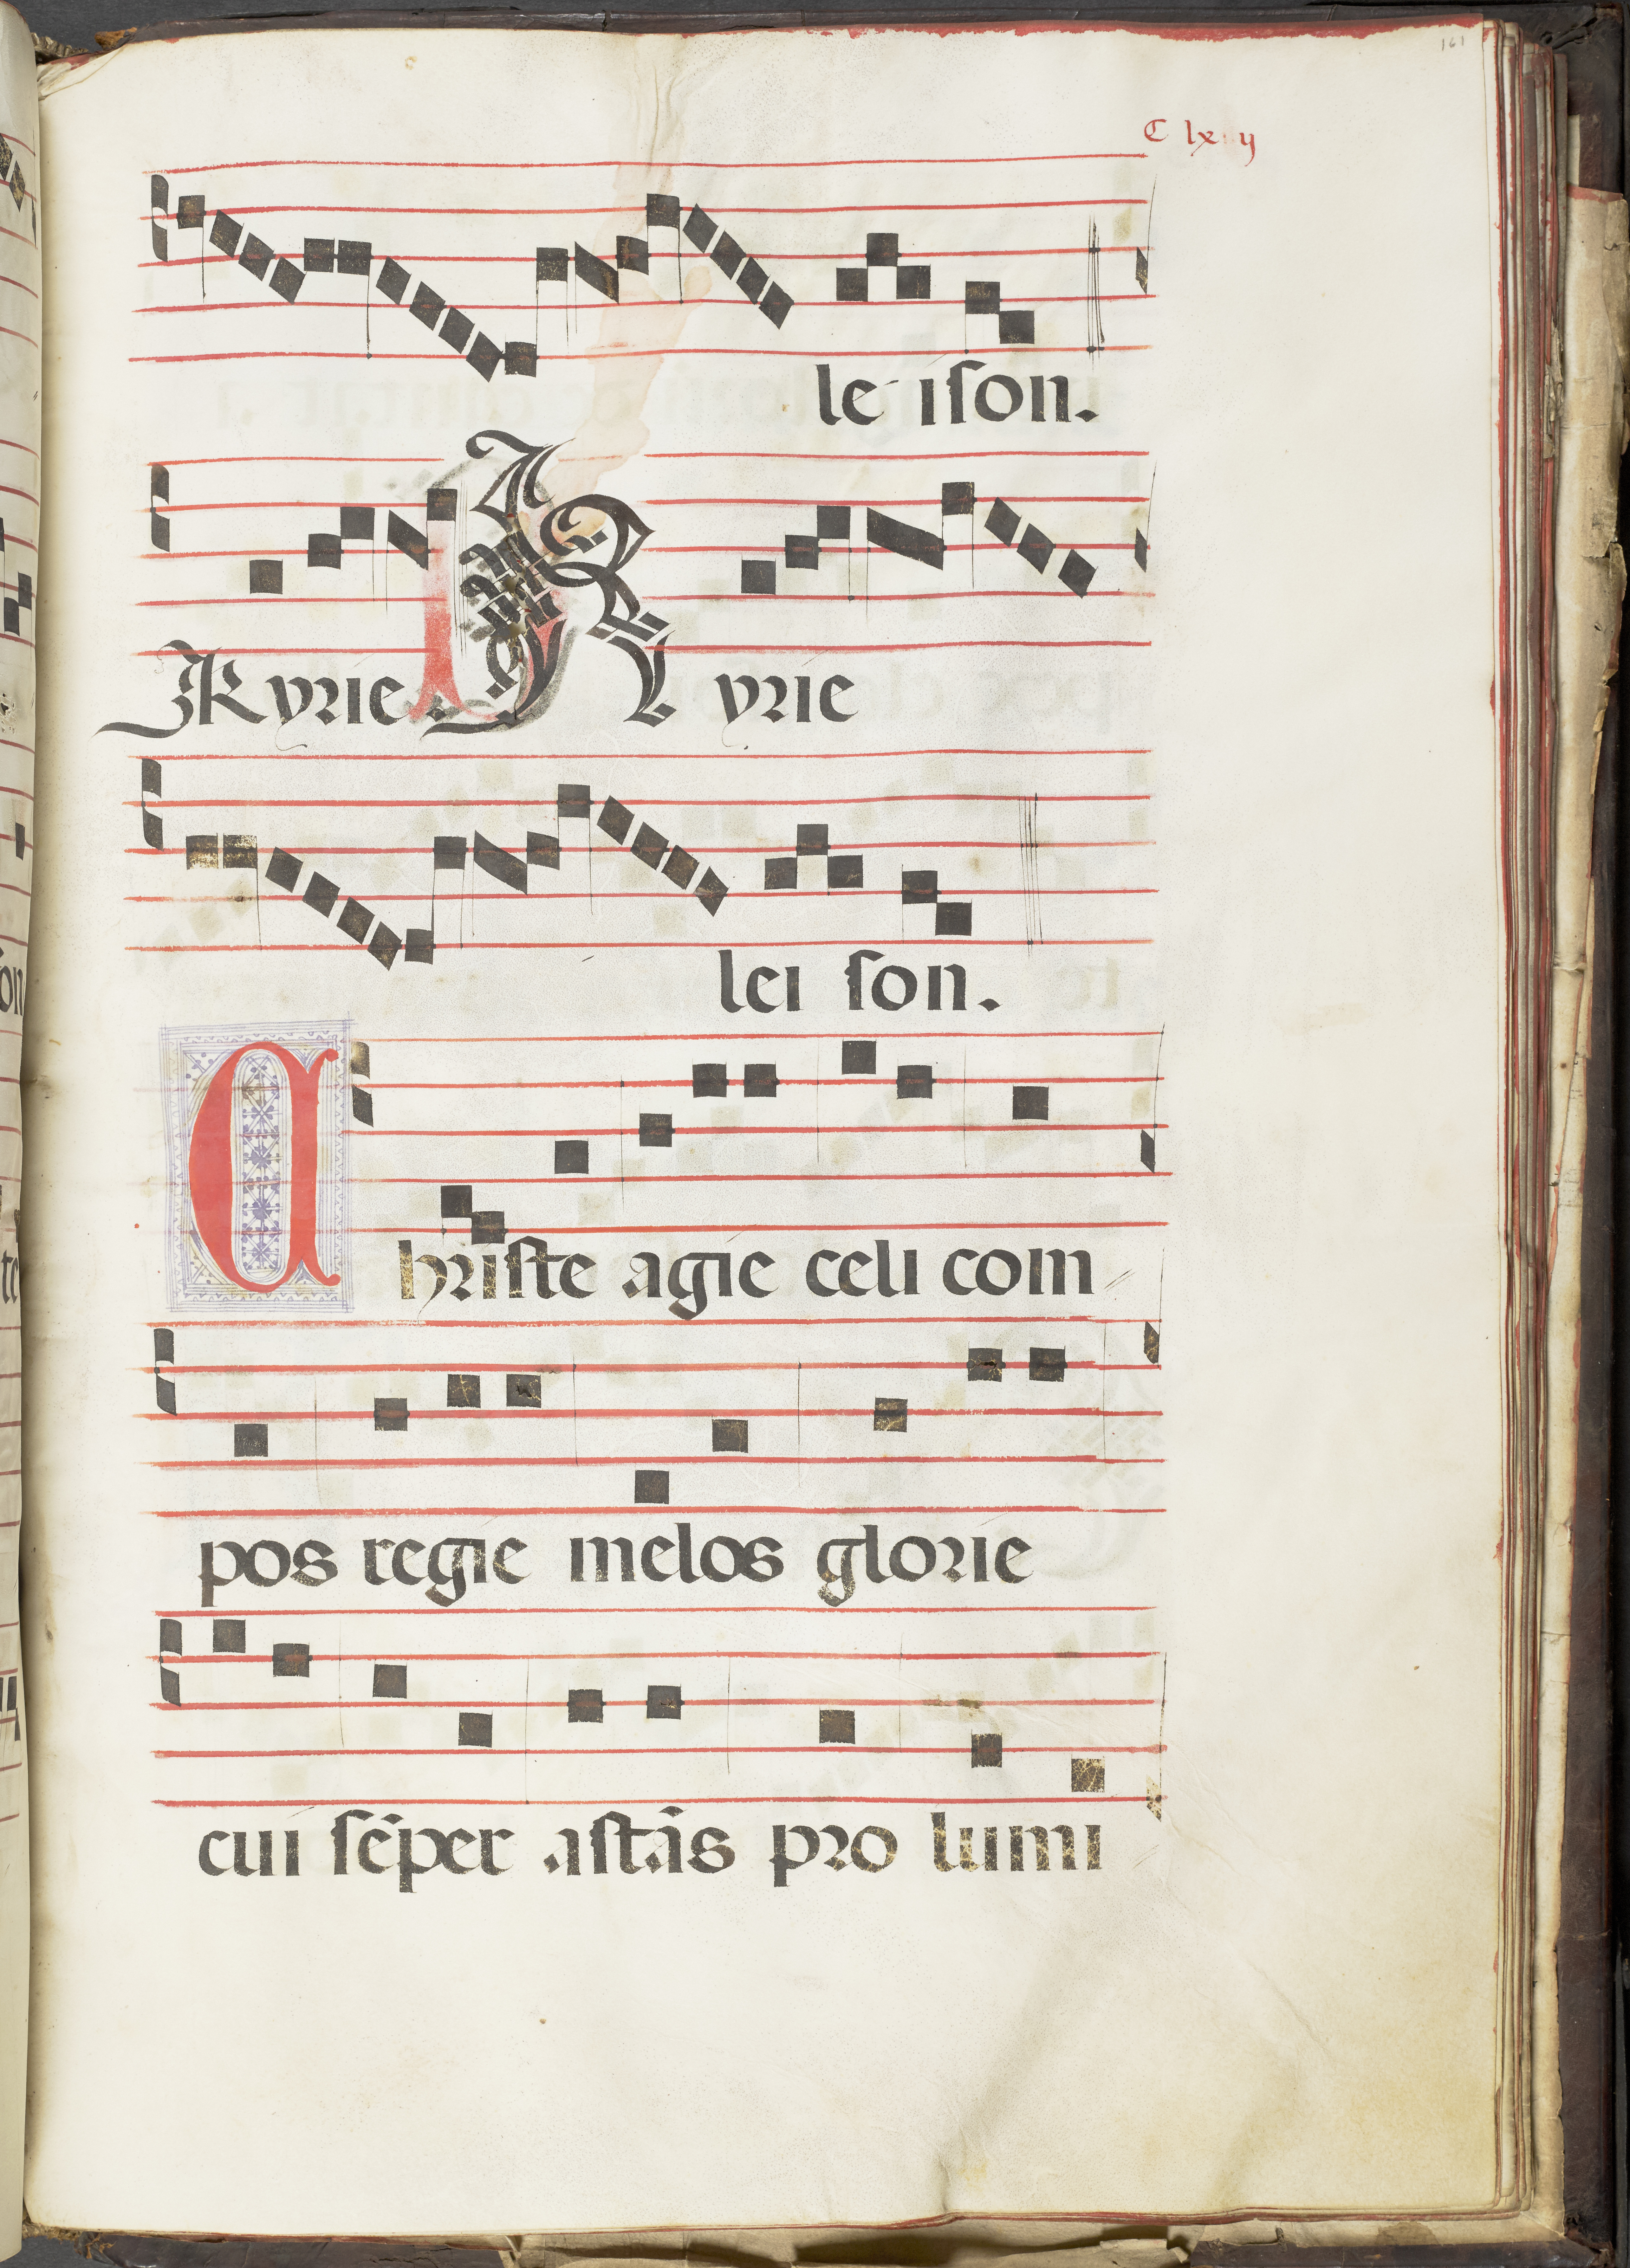 161
C lx y
le iſon.
Kyrie Kyrie
lei ſon.
Chriſte agie celi com
pos regie melos glorie
cui ſēper aſtās pro lumi